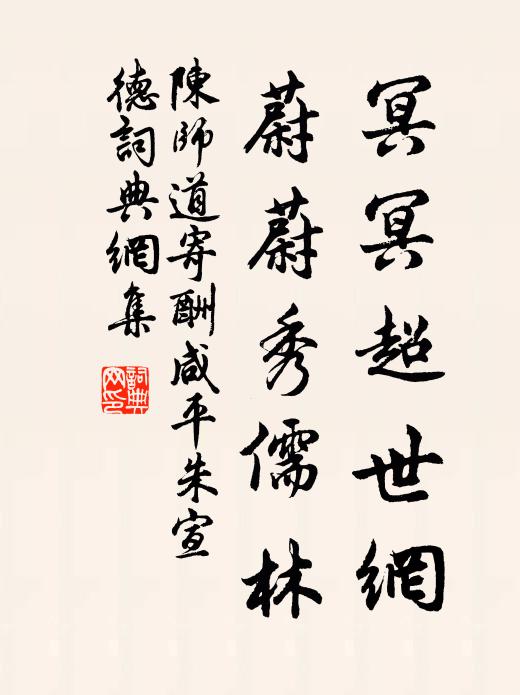 冥冥超世網
蔚蔚秀儒林
陳師道寄酬咸平朱宣
德詞典網集
詞典
网印